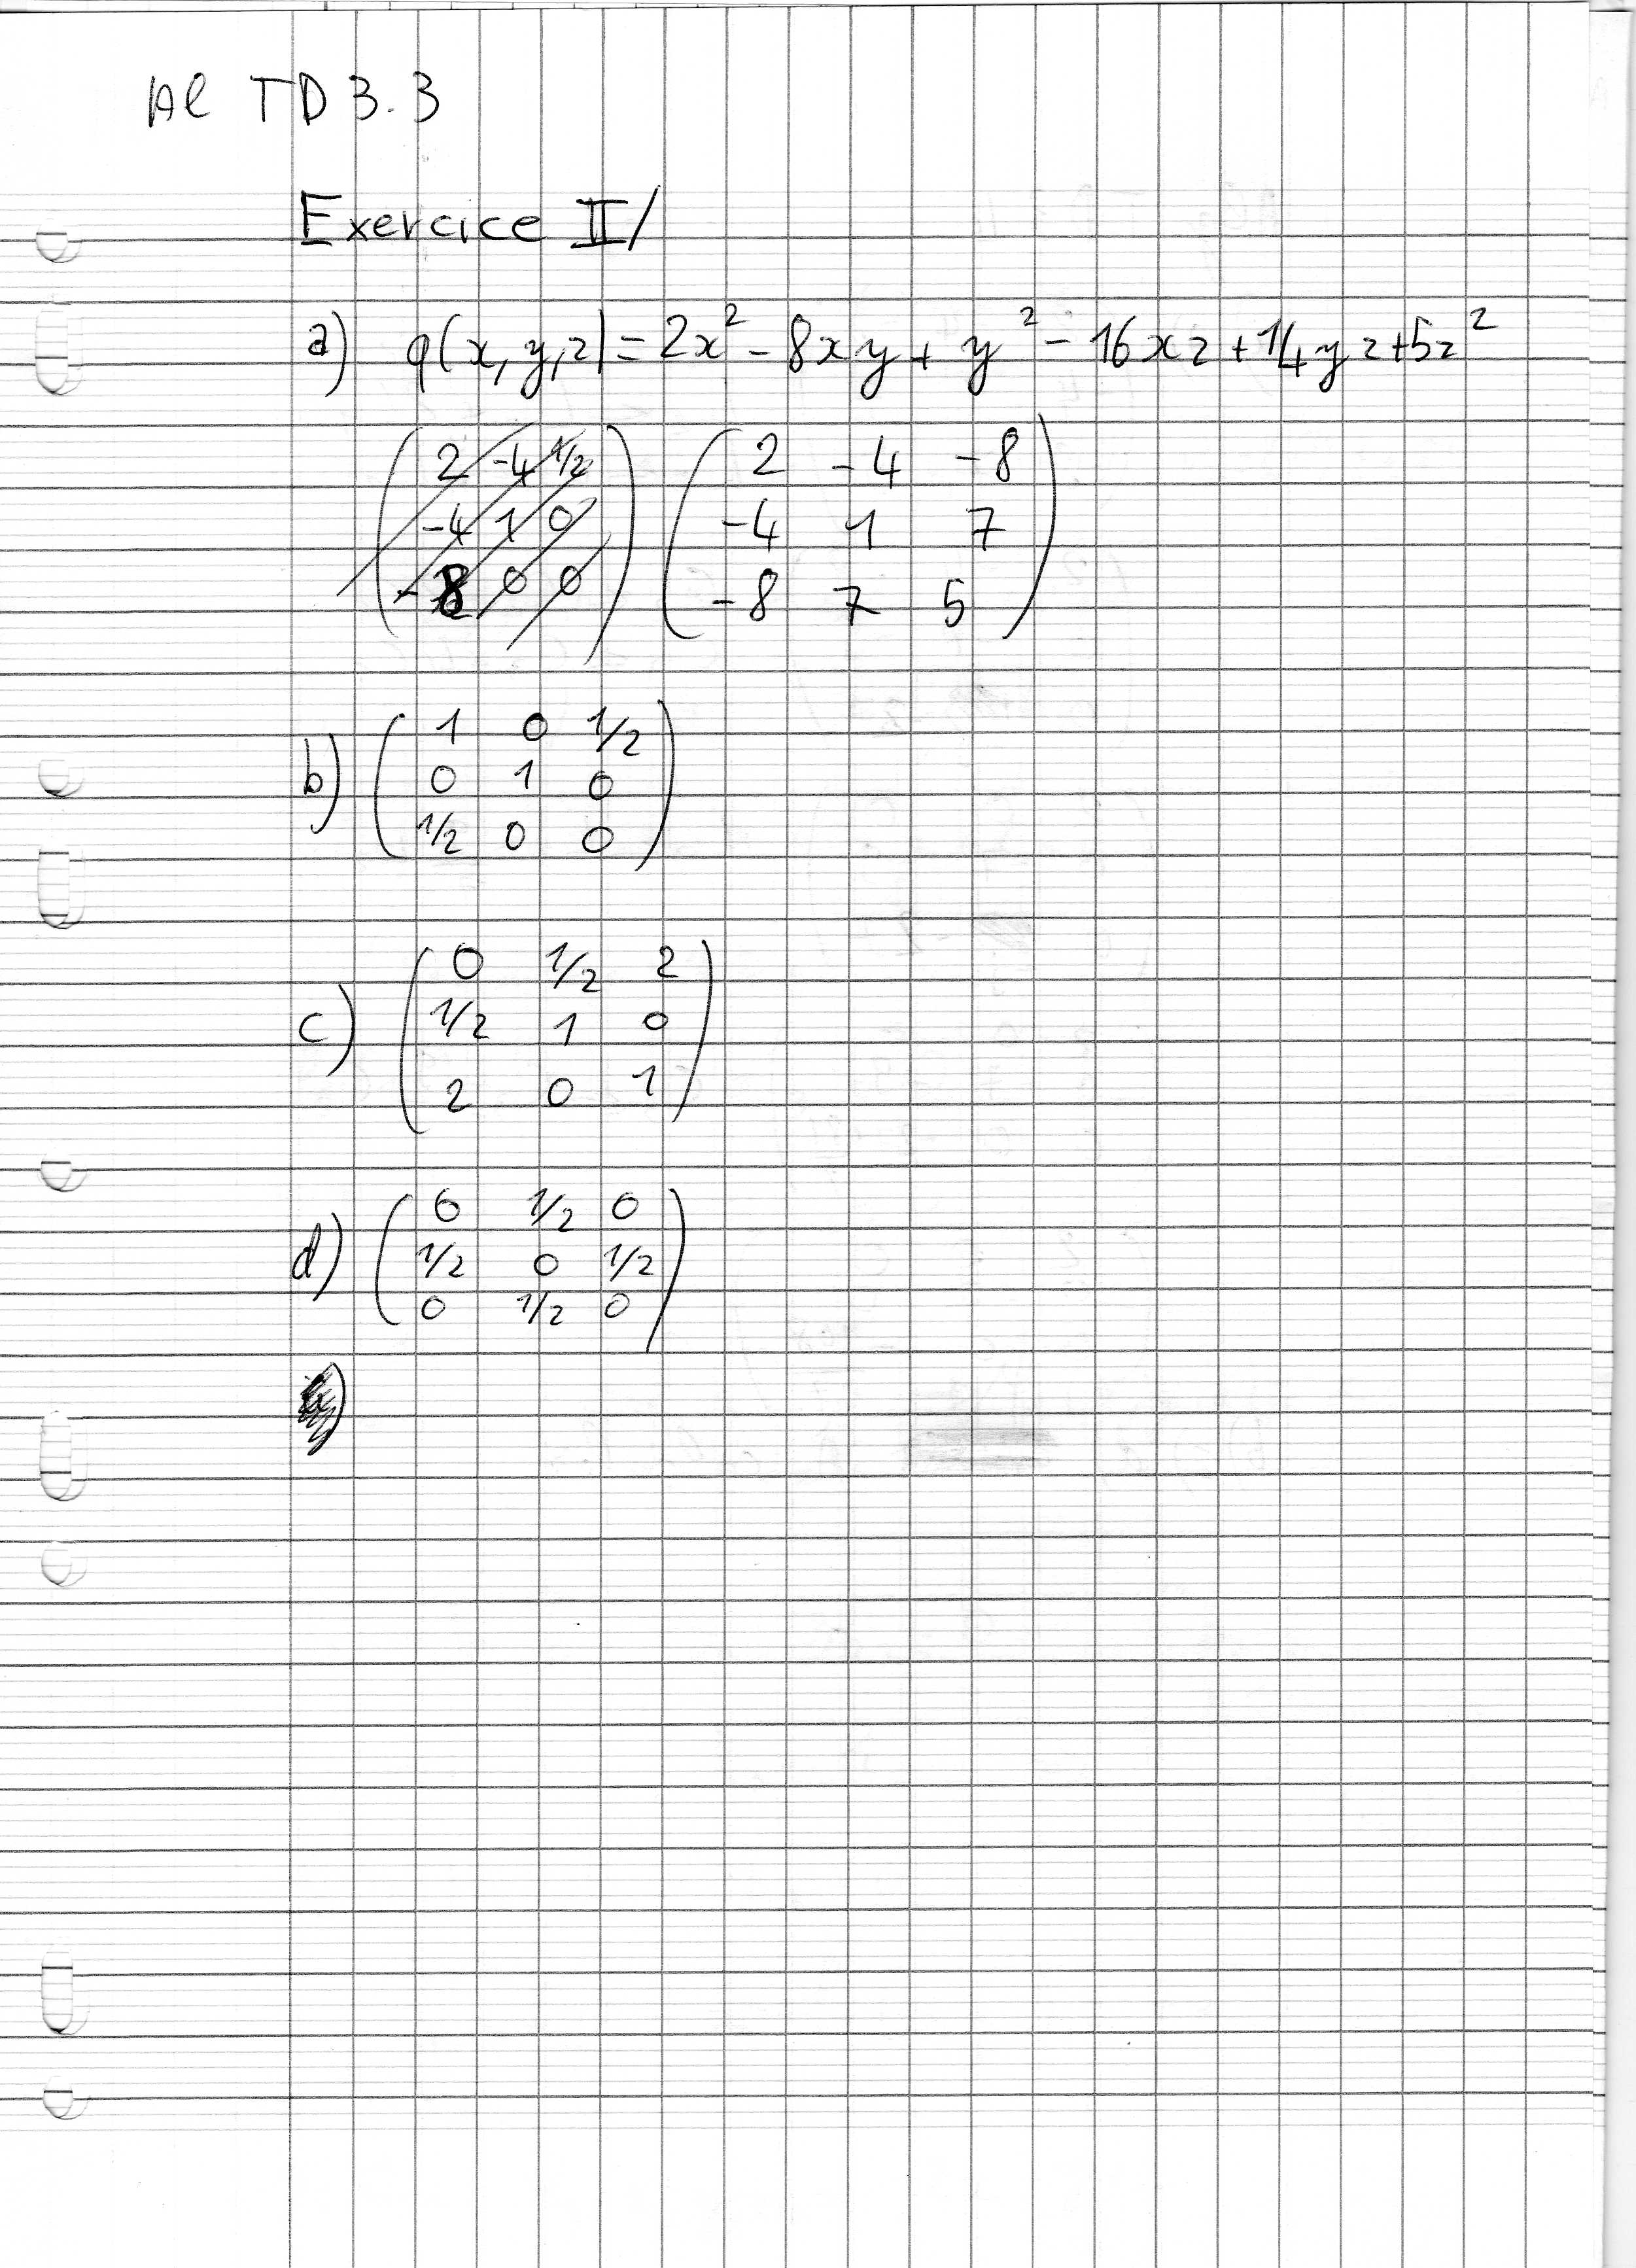 Al TD 3.3
Exercice II/
a) q(x, y, z) = 2x² - 8xy + y² - 16xz + 14yz + 5z²
2 -4 1/2 2 -4 -8
-4 1 0 -4 1 7
-8 0 0 -8 7 5
1 0 1/2
b) 0 1 0
1/2 0 0
0 1/2 2
c) 1/2 1 0
2 0 1
0 1/2 0
d) 1/2 0 1/2
0 1/2 0